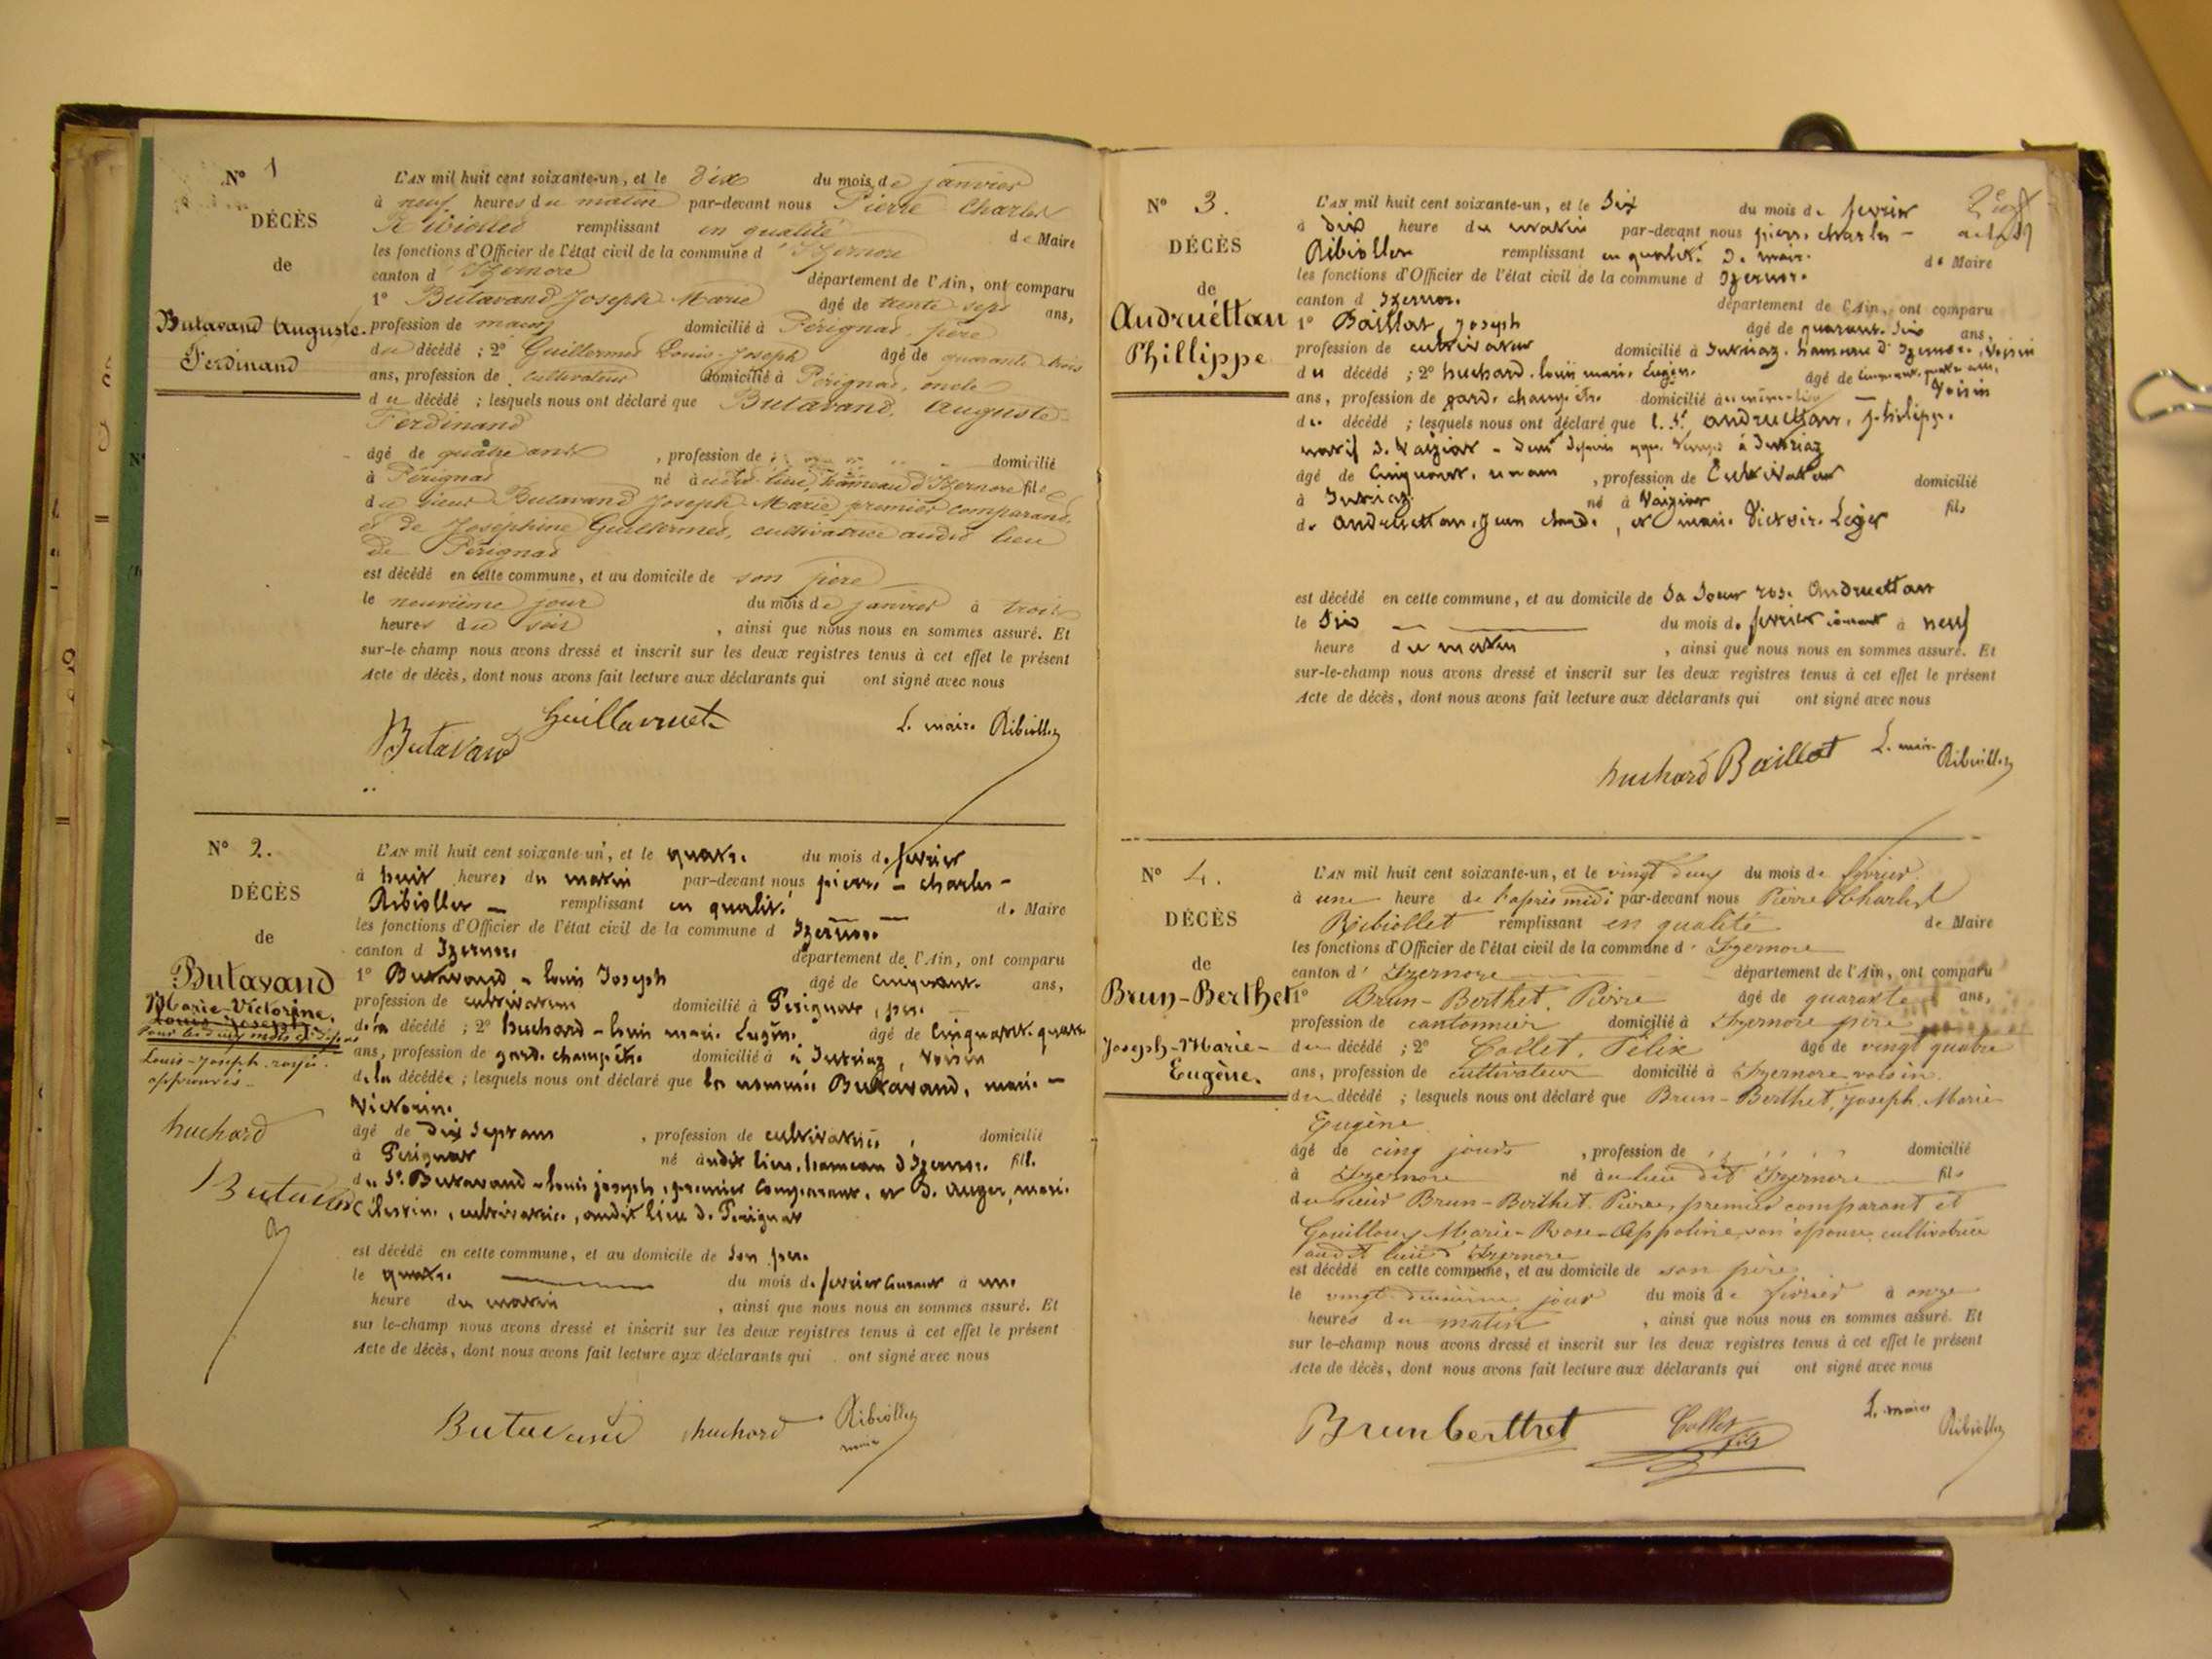 N° 1
DÉCÈS
de
Butavand Auguste
Ferdinand
L'AN mil huit cent soixante-un, et le dix du mois de janvier
à neuf heures du matin par-devant nous Pierre Charles
Ribiollet remplissant en qualité de Maire
les fonctions d'Officier de l'état civil de la commune d'Izernore
canton d'Izernore département de l'Ain, ont comparu
1° Butavand Joseph Marie âgé de trente sept ans,
profession de maçon domicilié à Pérignat, père
du décédé ; 2° Guillermet Louis-Joseph âgé de quarante trois
ans, profession de cultivateur domicilié à Pérignat, oncle
du décédé ; lesquels nous ont déclaré que Butavand, Auguste
Ferdinand
âgé de quatre ans , profession de domicilié
à Pérignat né audit lieu, hameau d'Izernore fils
du sieur Butavand Joseph Marie premier comparant,
et de Joséphine Guillermet, cultivatrice audit lieu
de Pérignat
est décédé en cette commune, et au domicile de son père
le neuvième jour du mois de janvier à trois
heures du soir , ainsi que nous nous en sommes assuré. Et
sur-le-champ nous avons dressé et inscrit sur les deux registres tenus à cet effet le présent
Acte de décès, dont nous avons fait lecture aux déclarants qui ont signé avec nous
Butavand Guillermet L. maire Ribiollet
N° 2.
DÉCÈS
de
Butavand
Marie-Victorine.
Louis-Joseph
Louis-Joseph rayés
approuvés
huchard
Butavand
L'AN mil huit cent soixante-un, et le quatre du mois de fevrier
à huit heures du matin par-devant nous pierre - charles -
Ribiollet remplissant en qualité de Maire
les fonctions d'Officier de l'état civil de la commune d Izernore
canton d Izernore département de l'Ain, ont comparu
1° Butavand - louis Joseph âgé de cinquante ans,
profession de cultivateur domicilié à Perignat, pere
de la décédé ; 2° huchard - louis marie Eugène âgé de cinquante quatre
ans, profession de garde champêtre domicilié à à Intriaz, voisin
de la décédée ; lesquels nous ont déclaré que la nommée Butavand, marie -
Victorine
âgé de dix sept ans , profession de cultivatrice , domicilié
à Perignat né audit lieu, hameau d Izernore fille
du Sr. Butavand - louis joseph, premier comparant, et d. auger, marie
célestine, cultivatrice, audit lieu de Perignat
est décédé en cette commune, et au domicile de son pere
le quatre du mois de fevrier courant à une
heure du matin , ainsi que nous nous en sommes assuré. Et
sur le-champ nous avons dressé et inscrit sur les deux registres tenus à cet effet le présent
Acte de décès, dont nous avons fait lecture aux déclarants qui ont signé avec nous
Butavand huchard Ribiollet
maire
N° 3.
DÉCÈS
de
Andruéttan
Phillippe
L'AN mil huit cent soixante-un, et le six du mois de fevrier
à dix heure du matin par-devant nous pierre charles -
Ribiollet remplissant en qualité de maire de Maire
les fonctions d'Officier de l'état civil de la commune d Izernore
canton d Izernore département de l'Ain, ont comparu
1° Baillat, Joseph âgé de quarante six ans,
profession de cultivateur domicilié à Intriaz, hameau d'Izernore, voisin
du décédé ; 2° huchard. louis marie Eugène âgé de cinquante quatre ans,
ans, profession de garde champêtre domicilié au même lieu voisin
du décédé ; lesquels nous ont déclaré que l. Sr. andruettan, philippe
natif d. Vaiziat à Intriaz
âgé de cinquante un ans , profession de Cultivateur domicilié
à Intriaz né à Vaiziat fils
de andruettan, Jean claude, et marie Victoire Leger
est décédé en cette commune, et au domicile de sa soeur rose Andruettan
le six du mois de fevrier courant à neuf
heure du matin , ainsi que nous nous en sommes assuré. Et
sur-le-champ nous avons dressé et inscrit sur les deux registres tenus à cet effet le présent
Acte de décès, dont nous avons fait lecture aux déclarants qui ont signé avec nous
huchard Baillat L. maire Ribiollet
N° 4.
DÉCÈS
de
Brun-Berthet
Joseph-Marie-
Eugène.
L'AN mil huit cent soixante-un, et le vingt deux du mois de février
à une heure de l'après midi par-devant nous Pierre Charles
Ribiollet remplissant en qualité de Maire
les fonctions d'Officier de l'état civil de la commune d'Izernore
canton d'Izernore département de l'Ain, ont comparu
1° Brun-Berthet, Pierre âgé de quarante ans,
profession de cantonnier domicilié à Izernore père
du décédé ; 2° Collet, Félix âgé de vingt quatre
ans, profession de cultivateur domicilié à Izernore voisin
du décédé ; lesquels nous ont déclaré que Brun-Berthet, Joseph Marie
Eugène
âgé de cinq jours , profession de domicilié
à Izernore né au lieu dit Izernore fils
du sieur Brun-Berthet Pierre, premier comparant et
Gouilloux Marie-Rose-Appoline son épouse, cultivatrice
audit lieu d'Izernore
est décédé en cette commune, et au domicile de son père
le vingt deuxième jour du mois de février à onze
heures du matin , ainsi que nous nous en sommes assuré. Et
sur le-champ nous avons dressé et inscrit sur les deux registres tenus à cet effet le présent
Acte de décès, dont nous avons fait lecture aux déclarants qui ont signé avec nous
Brunberthet Collet fils L. maire Ribiollet